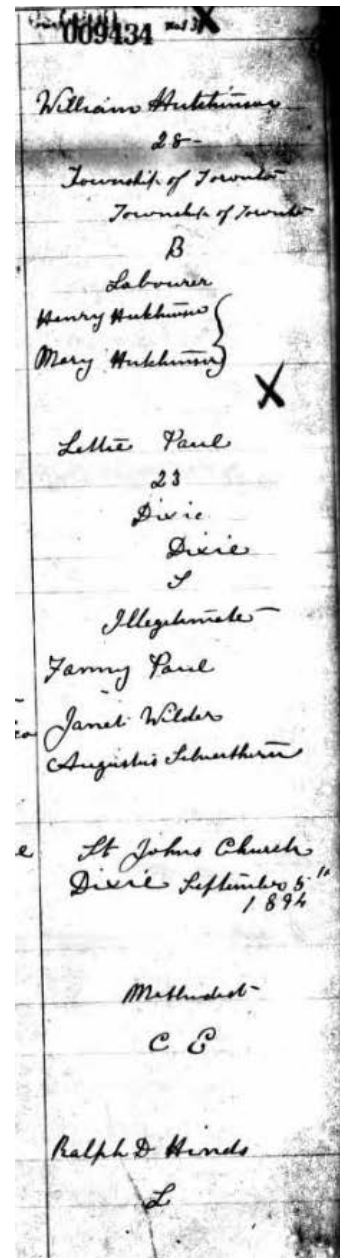 009434
William Hutchinson
28
Township of Toronto
Township of Toronto
B
Labourer
Henry Hutchinson
Mary Hutchinson
X
Lettie Paul
23
Dixie
Dixie
S
Illegitimate
Fanny Paul
Janet Wilder
Augustus
St Johns Church
Dixie September 5"
1894
Methodist
C E
Ralph D Hinds
L